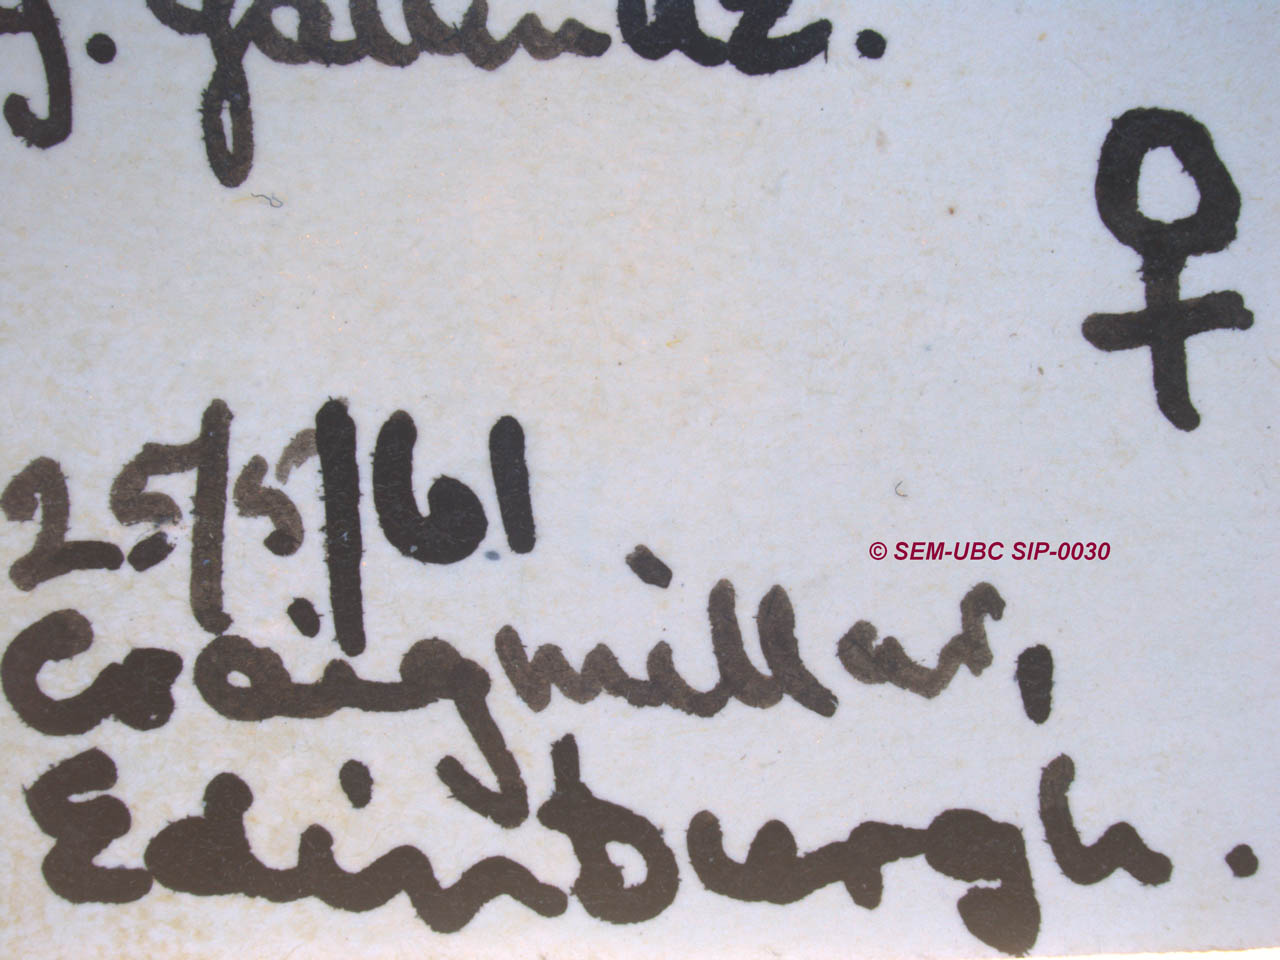 g. gallinulae.
♀
25/5/61
© SEM-UBC SIP-0030
Craigmillar,
Edinburgh.